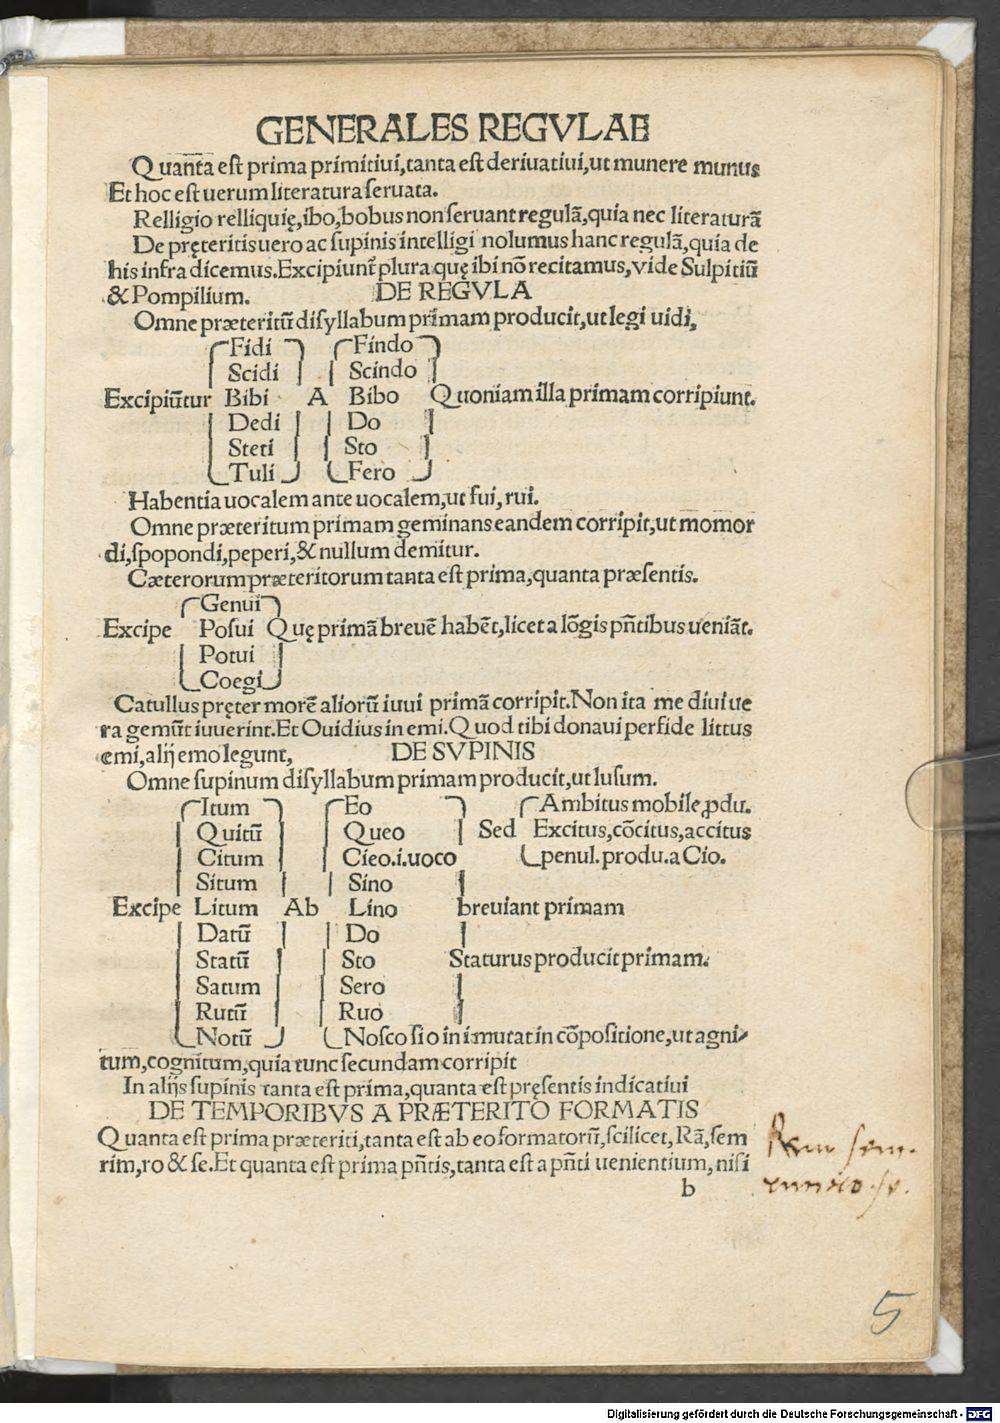 GENERALES REGVLAE
Quan̄ta eſt prima primitiui,tanta eſt deriuatiui,ut munere munus
Et hoc eſt uerum literatura ſeruata.
Relligio relliquię,ibo,bobus non ſeruant regulā,quia nec literaturā
De pręteritis uero ac ſupinis intelligi nolumus hanc regulā,quia de
his infra dicemus.Excipiunt̄ plura quę ibi nō recitamus,vide Sulpitiū
& Pompilium. DE REGVLA
Omne præteritū diſyllabum primam producit,ut legi uidi,
Fidi Findo
Scidi Scindo
Excipiūtur Bibi A Bibo Quoniam illa primam corripiunt.
Dedi Do
Steti Sto
Tuli Fero
Habentia uocalem ante uocalem,ut fui, rui.
Omne præteritum primam geminans eandem corripit,ut momor
di,ſpopondi,peperi,& nullum demitur.
Cæterorum præteritorum tanta eſt prima,quanta præſentis.
Genui
Excipe Poſui Quę primā breuē habēt,licet a lōgis pn̄tibus ueniāt.
Potui
Coegi
Catullus pręter morē aliorū iuui primā corripit.Non ita me diui ue
ra gemūt iuuerint.Et Ouidius in emi.Quod tibi donaui perfide littus
emi,alij emo legunt, DE SVPINIS
Omne ſupinum diſyllabum primam producit,ut luſum.
Itum Eo Ambitus mobile,ꝓdu.
Quitū Queo Sed Excitus,cōcitus,accitus
Citum Cieo.i.uoco penul.produ.a Cio.
Situm Sino
Excipe Litum Ab Lino breuiant primam
Datū Do
Statū Sto Staturus producit primam.
Satum Sero
Rutū Ruo
Notū Noſco ſi o in i mutat in cōpoſitione,ut agni
tum,cognitum,quia tunc ſecundam corripit
In alijs ſupinis tanta eſt prima,quanta eſt pręſentis indicatiui
DE TEMPORIBVS A PRÆTERITO FORMATIS
Quanta eſt prima præteriti,tanta eſt ab eo formatorū,ſcilicet, Rā,ſem
rim,ro & ſe.Et quanta eſt prima pn̄tis,tanta eſt a pn̄ti uenientium, niſi
b
5
Digitalisierung gefördert durch die Deutsche Forschungsgemeinschaft - DFG